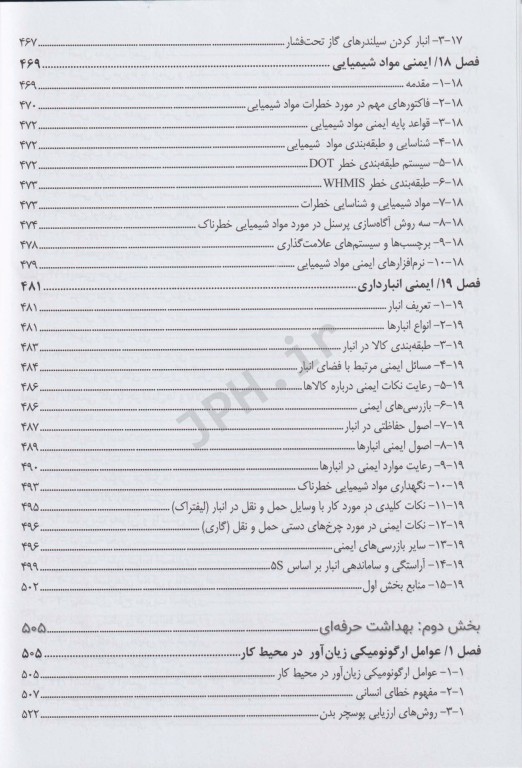 ۱۷-۳- انبار کردن سیلندرهای گاز تحت‌فشار ........ ۴۶۷
فصل ۱۸/ ایمنی مواد شیمیایی ........ ۴۶۹
۱۸-۱- مقدمه ........ ۴۶۹
۱۸-۲- فاکتورهای مهم در مورد خطرات مواد شیمیایی ........ ۴۷۰
۱۸-۳- قواعد پایه ایمنی مواد شیمیایی ........ ۴۷۲
۱۸-۴- شناسایی و طبقه‌بندی مواد شیمیایی ........ ۴۷۲
۱۸-۵- سیستم طبقه‌بندی خطر DOT ........ ۴۷۲
۱۸-۶- طبقه‌بندی خطر WHMIS ........ ۴۷۳
۱۸-۷- مواد شیمیایی و شناسایی خطرات ........ ۴۷۳
۱۸-۸- سه روش آگاه‌سازی پرسنل در مورد مواد شیمیایی خطرناک ........ ۴۷۴
۱۸-۹- برچسب‌ها و سیستم‌های علامت‌گذاری ........ ۴۷۸
۱۸-۱۰- نرم‌افزارهای ایمنی مواد شیمیایی ........ ۴۷۹
فصل ۱۹/ ایمنی انبارداری ........ ۴۸۱
۱۹-۱- تعریف انبار ........ ۴۸۱
۱۹-۲- انواع انبارها ........ ۴۸۱
۱۹-۳- طبقه‌بندی کالا در انبار ........ ۴۸۳
۱۹-۴- مسائل ایمنی مرتبط با فضای انبار ........ ۴۸۴
۱۹-۵- رعایت نکات ایمنی درباره کالاها ........ ۴۸۶
۱۹-۶- بازرسی‌های ایمنی ........ ۴۸۶
۱۹-۷- اصول حفاظتی در انبار ........ ۴۸۷
۱۹-۸- اصول ایمنی انبارها ........ ۴۸۹
۱۹-۹- رعایت موارد ایمنی در انبارها ........ ۴۹۰
۱۹-۱۰- نگهداری مواد شیمیایی خطرناک ........ ۴۹۳
۱۹-۱۱- نکات کلیدی در مورد کار با وسایل حمل و نقل در انبار (لیفتراک) ........ ۴۹۵
۱۹-۱۲- نکات ایمنی در مورد چرخ‌های دستی حمل و نقل (گاری) ........ ۴۹۶
۱۹-۱۳- سایر بازرسی‌های ایمنی ........ ۴۹۶
۱۹-۱۴- آراستگی و ساماندهی انبار بر اساس ۵S ........ ۴۹۹
۱۹-۱۵- منابع بخش اول ........ ۵۰۲
بخش دوم: بهداشت حرفه‌ای ........ ۵۰۵
فصل ۱/ عوامل ارگونومیکی زیان‌آور در محیط کار ........ ۵۰۵
۱-۱- عوامل ارگونومیکی زیان‌آور در محیط کار ........ ۵۰۵
۱-۲- مفهوم خطای انسانی ........ ۵۰۷
۱-۳- روش‌های ارزیابی پوسچر بدن ........ ۵۲۲
JPH.ir